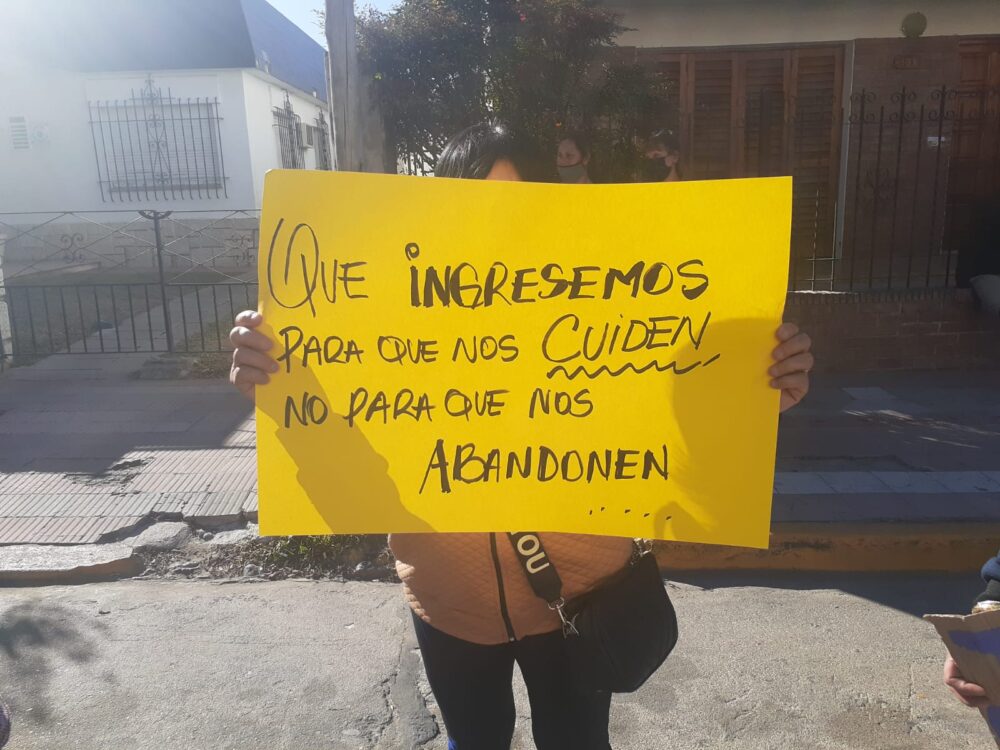 QUE iNGRESEMOS
PARA QUE NOS CUiDEN
NO PARA QUE NOS
ABANDONEN
.....
OU